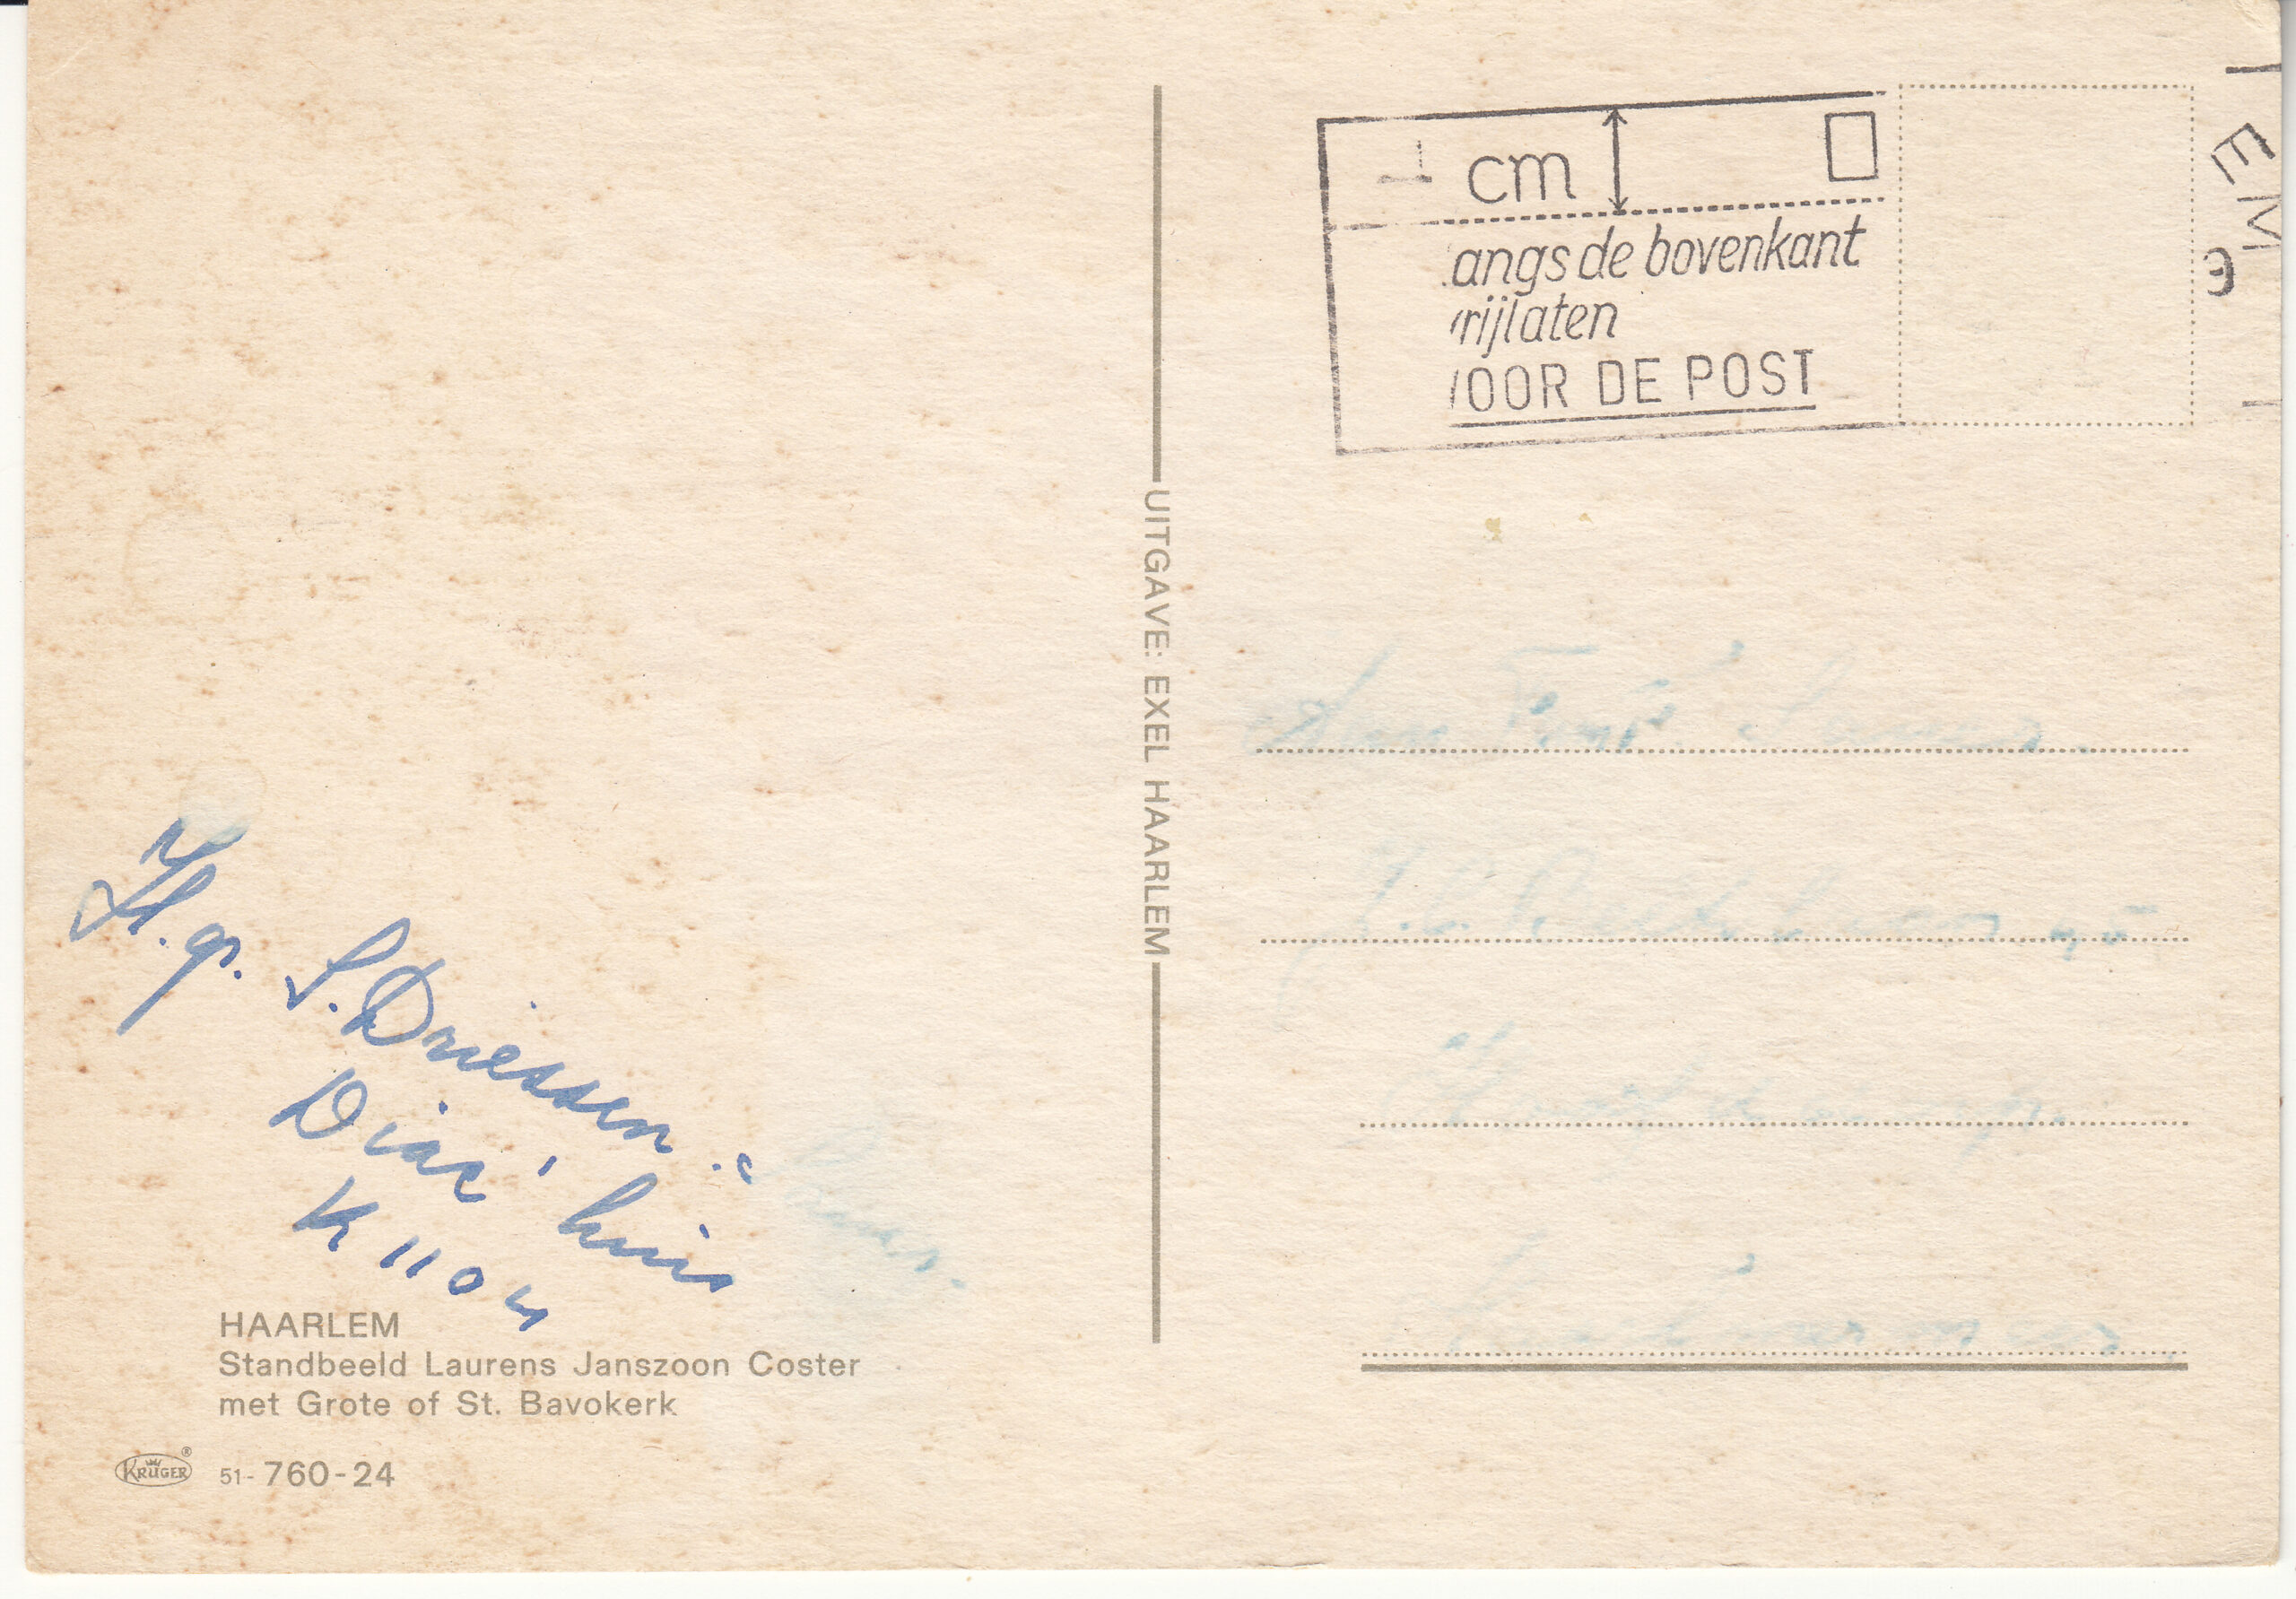 cm
angs de bovenkant
rijlaten
OOR DE POST
EM
UITGAVE: EXEL HAARLEM
H. gr.
S. Driessen
Diac' huis
K 1104
HAARLEM
Standbeeld Laurens Janszoon Coster
met Grote of St. Bavokerk
KRÜGER ® 51-760-24